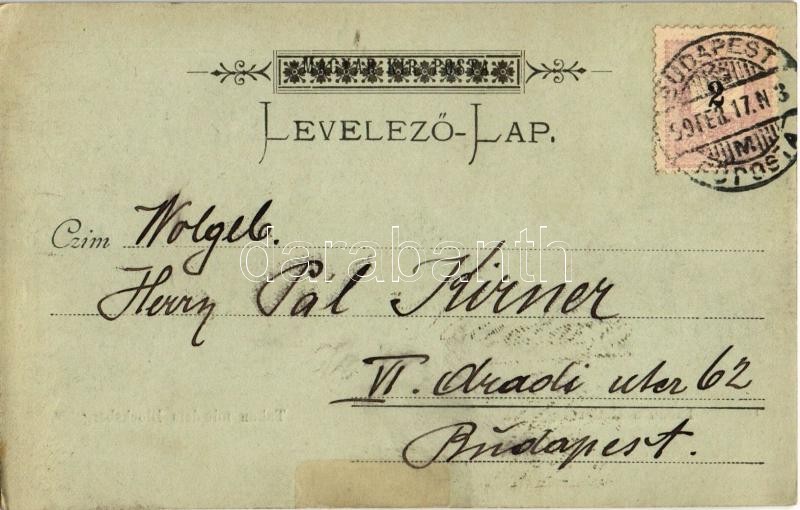 MAGYAR KIR. POSTA
LEVELEZŐ-LAP.
BUDAPEST
2
99 FEB. 17. N 3
M
FŐPOSTA
Czim Wolgeb.
darabanth
Herrn Pál Kirner
VI. Aradi utca 62
Budapest.